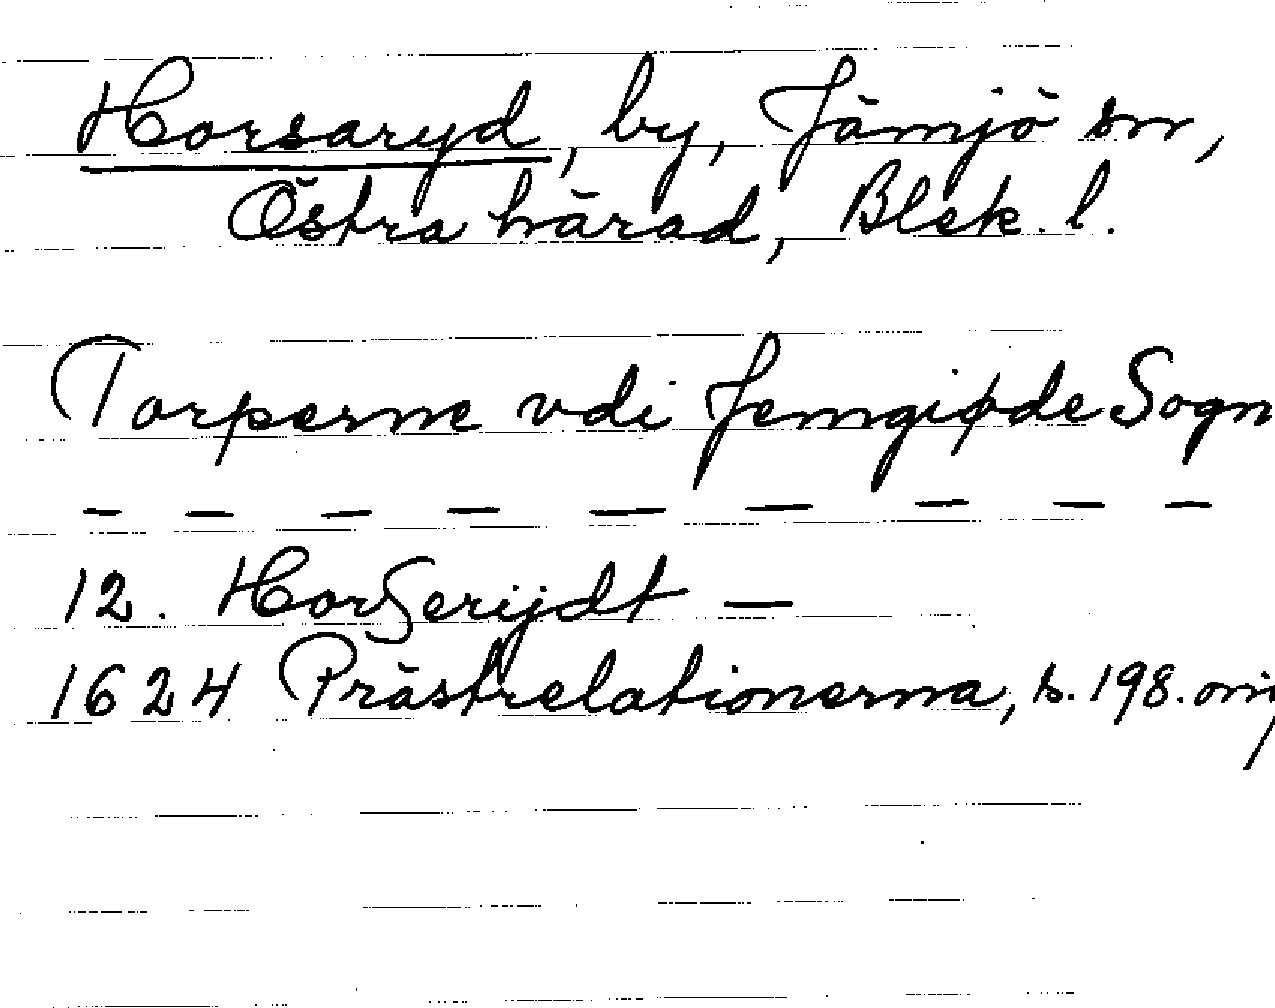 Horsaryd, by, Jämjö sn,
Östra härad, Blek. l.
Torperne vdi Jemgiøde Sogn
— — — — — — — — —
12. Horſerijdt —
1624 Prästrelationerna, s. 198.